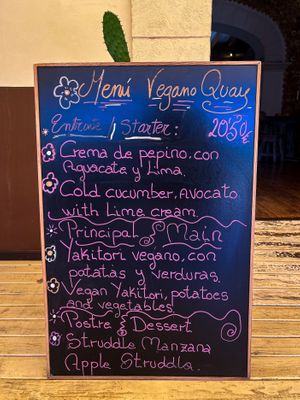 Menú Vegano Quay
Entrante / Starter: 20'50€
Crema de pepino, con
Aguacate y Lima.
Cold cucumber, Avocato
with Lime cream
Principal / Main
Yakitori vegano, con
patatas y verduras.
Vegan Yakitori, potatoes
and vegetables
Postre & Dessert
Struddle Manzana
Apple Struddla.